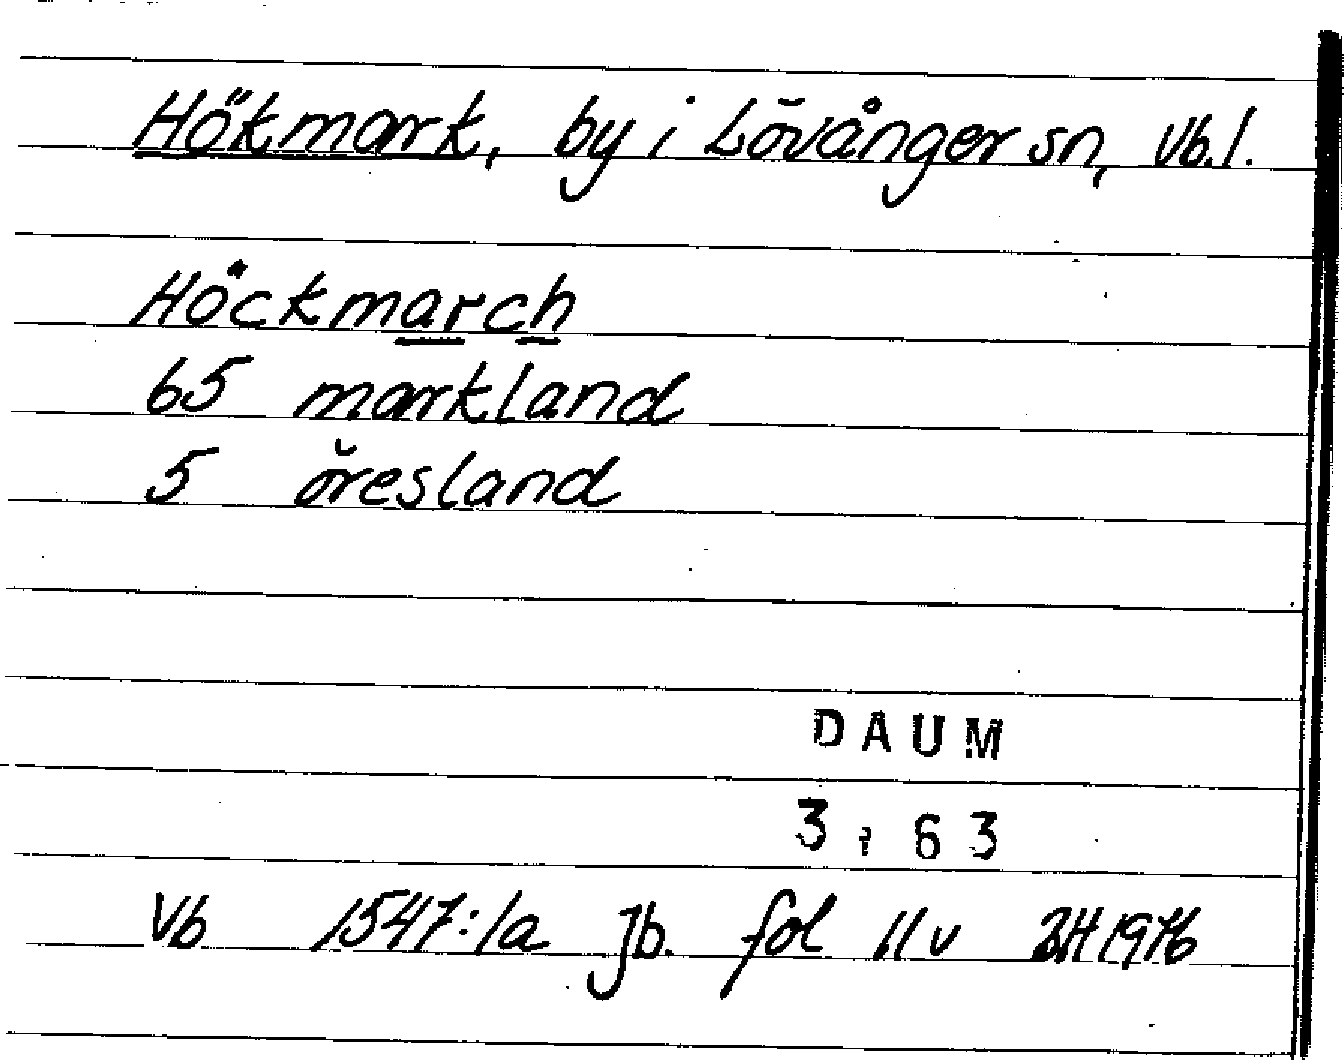 Hökmark, by i Lövånger sn, Vb.l.
Höckmarch
65 markland
5 öresland
DAUM
3, 63
Vb 1547:1a Jb. fol 11v 1976